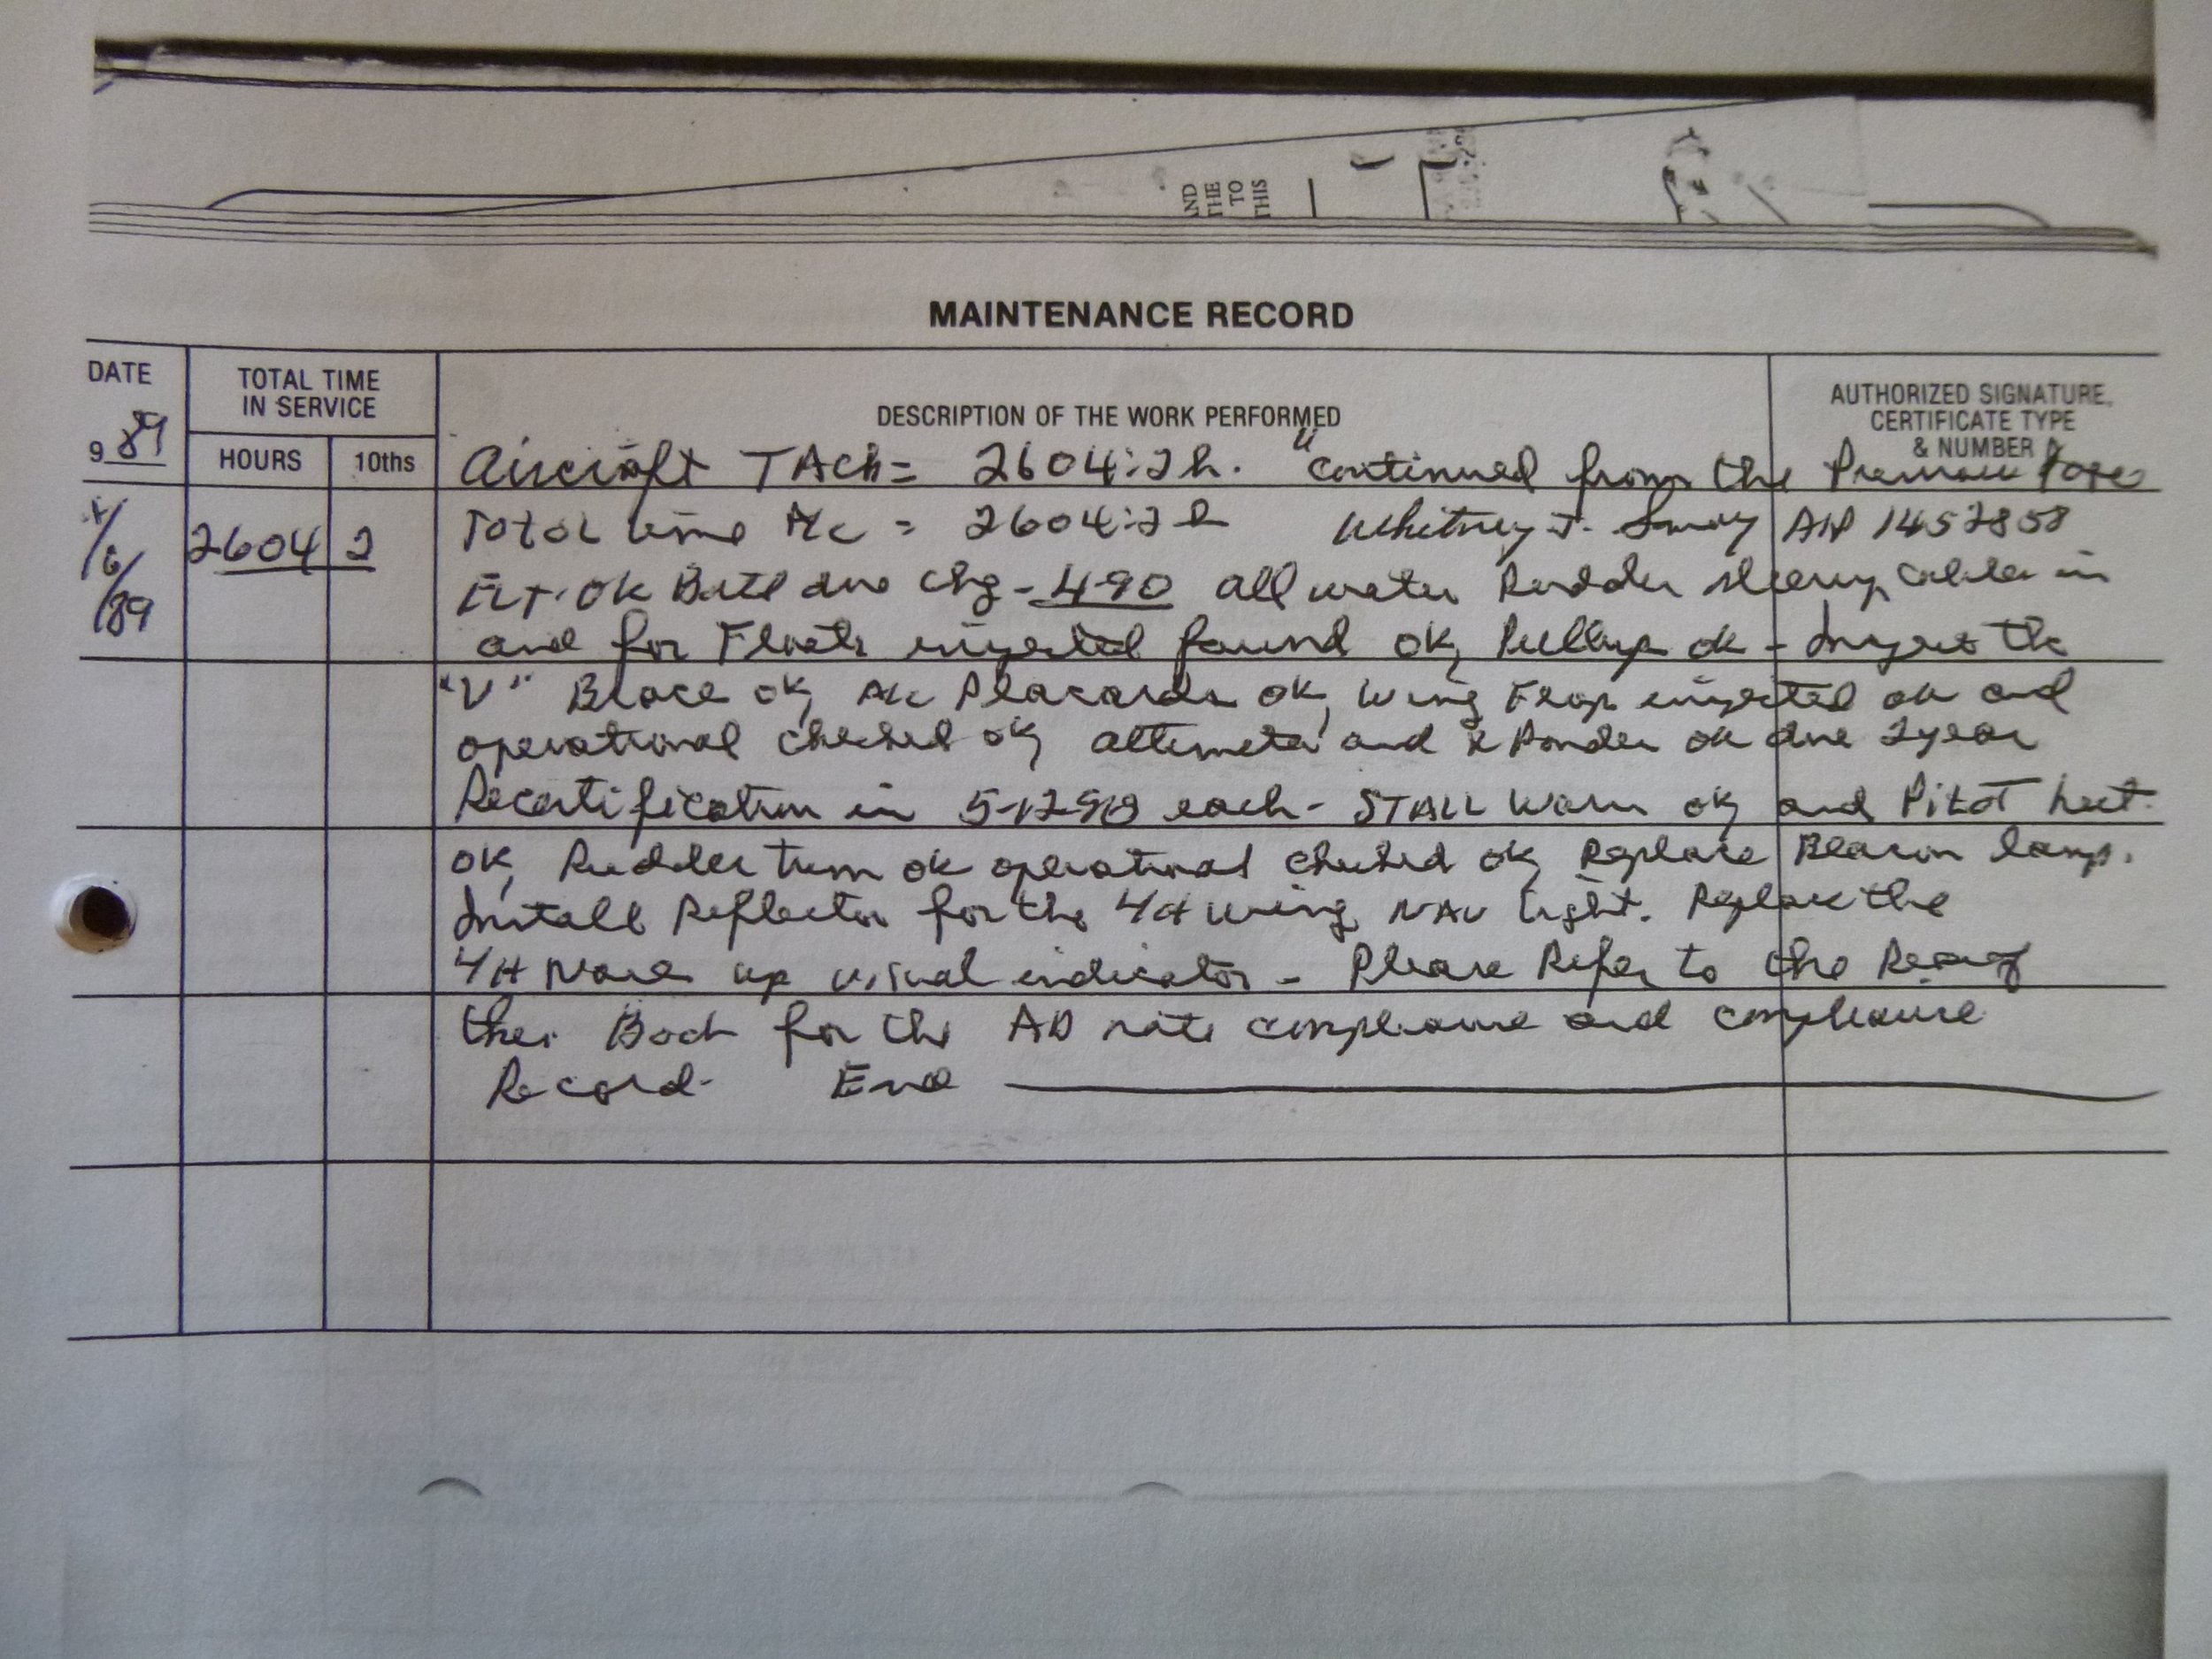 ND
THE
TO
THIS
MAINTENANCE RECORD
DATE
9 89
TOTAL TIME
IN SERVICE
HOURS
10ths
DESCRIPTION OF THE WORK PERFORMED
AUTHORIZED SIGNATURE,
CERTIFICATE TYPE
& NUMBER
Aircraft TAch= 2604:2h. "continued from the
/6/89
2604 2
Total time A/c = 2604:2h Whitney J. AP 1452858
ELT. OK Batt due chg - 4-90 all water Rudder steering cable in
and for Floats inspected found ok, Pullup ok - Inspect the
"V" Brace ok, A/c Placards ok, wing Flap inspected ok and
operational checked ok, altimeter and x Ponder ok due 2 year
Recertification in each - STALL Warn ok, and Pitot heat
ok, Rudder trim ok operational checked ok, Replace Beacon lamp.
Install Reflector for the wing NAV light. Replace the
Nose up visual indicator - Please Refer to the
Book for the AD note compliance and compliance
Record. End